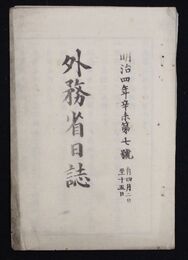 明治四年辛未第七號
自四月二日
至十五日
外務省日誌